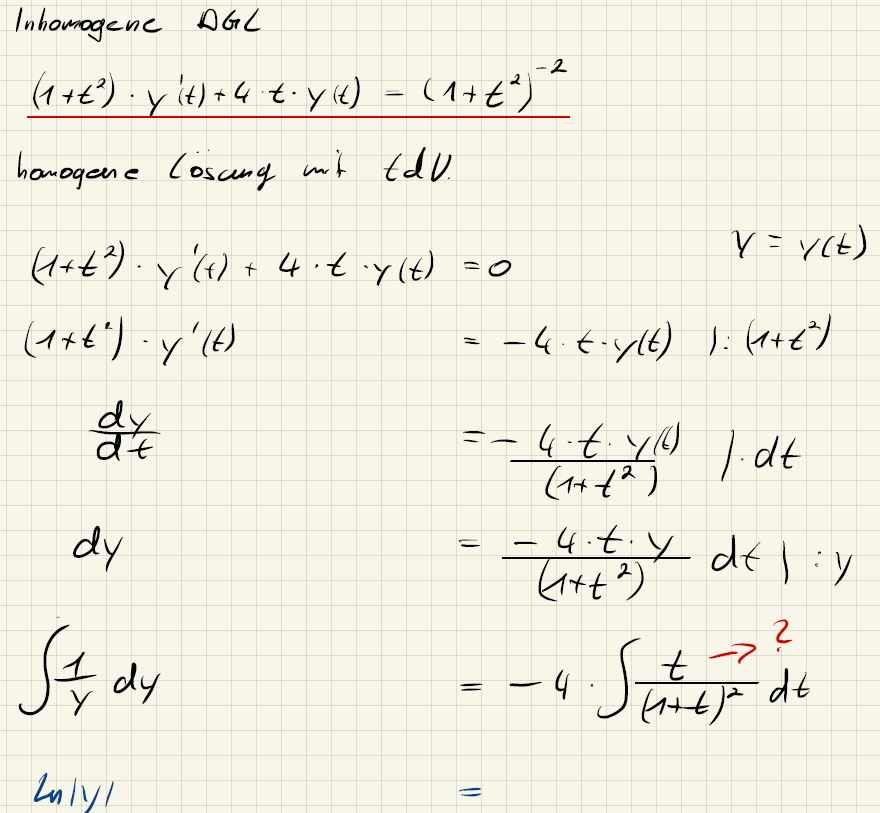 Inhomogene DGL
(1+t²) · y'(t) + 4 · t · y(t) = (1+t²)⁻²
homogene Lösung mit tdV.
(1+t²) · y'(t) + 4 · t · y(t) = 0 y = y(t)
(1+t²) · y'(t) = -4 · t · y(t) | : (1+t²)
dy/dt = - 4 · t · y(t) / (1+t²) | · dt
dy = - 4 · t · y / (1+t²) dt | : y
∫ 1/y dy = -4 · ∫ t / (1+t)² dt → ?
ln|y| =